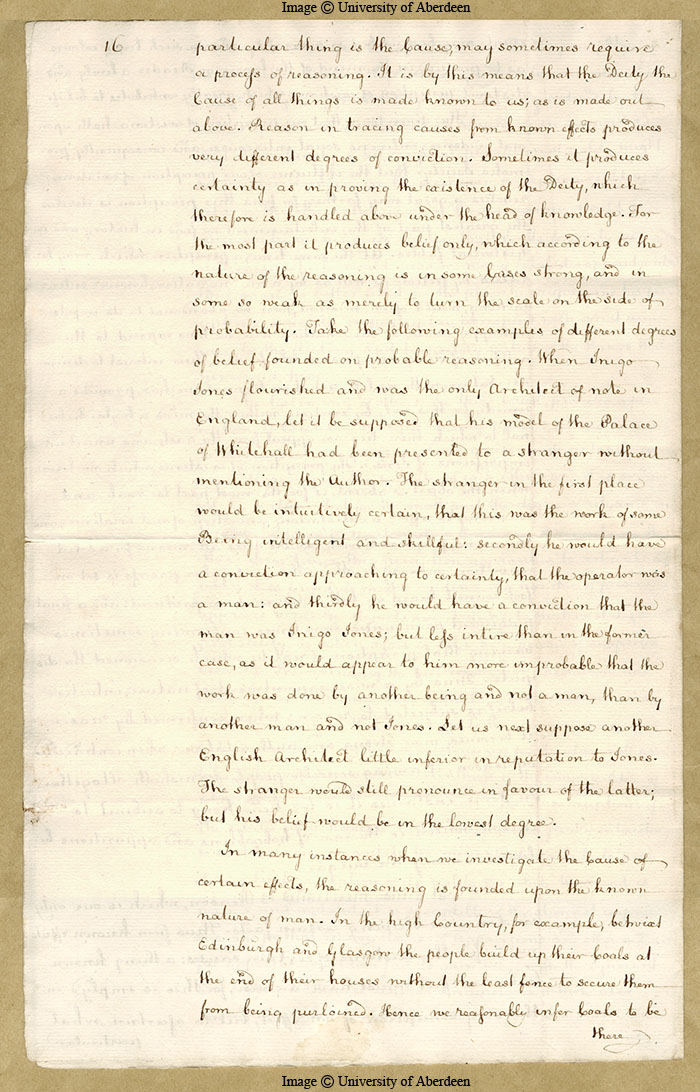 Image © University of Aberdeen
16
particular thing is the Cause, may sometimes require
a process of reasoning. It is by this means that the Deity the
Cause of all things is made known to us; as is made out
above. Reason in tracing causes from known effects produces
very different degrees of conviction. Sometimes it produces
certainty as in proving the existence of the Deity, which
therefore is handled above under the head of knowledge. For
the most part it produces belief only, which according to the
nature of the reasoning is in some Cases strong, and in
some so weak as merely to turn the scale on the side of
probability. Take the following examples of different degrees
of belief founded on probable reasoning. When Inigo
Jones flourished and was the only Architect of note in
England, let it be supposed that his model of the Palace
of Whitehall had been presented to a stranger without
mentioning the Author. The stranger in the first place
would be intuitively certain, that this was the work of some
Being intelligent and skillful: secondly he would have
a conviction approaching to certainty, that the operator was
a man: and thirdly he would have a conviction that the
man was Inigo Jones; but less intire than in the former
case, as it would appear to him more improbable that the
work was done by another being and not a man, than by
another man and not Jones. Let us next suppose another
English Architect little inferior in reputation to Jones.
The stranger would still pronounce in favour of the latter;
but his belief would be in the lowest degree.
In many instances when we investigate the Cause of
certain effects, the reasoning is founded upon the known
nature of man. In the high Country, for example, betwixt
Edinburgh and Glasgow the people build up their Coals at
the end of their houses without the least fence to secure them
from being purloined. Hence we reasonably infer Coals to be
there
Image © University of Aberdeen